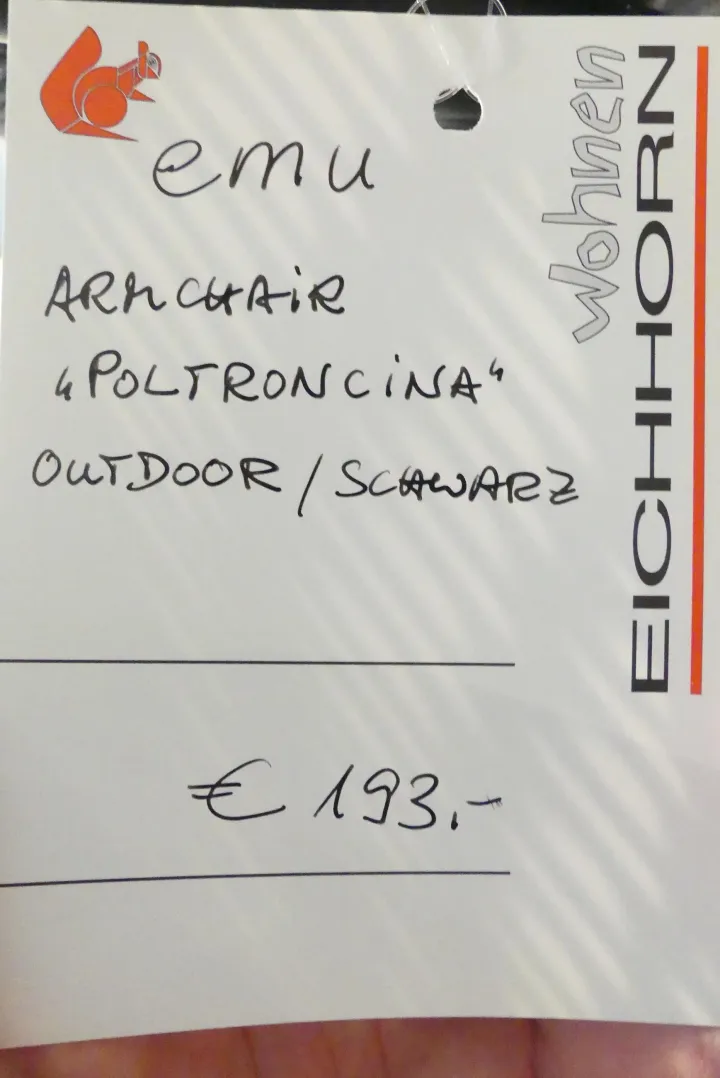 emu
ARMCHAiR
„POLTRONCiNA“
OUTDOOR / SCHWARZ
€ 193.-
Wohnen
EICHHORN